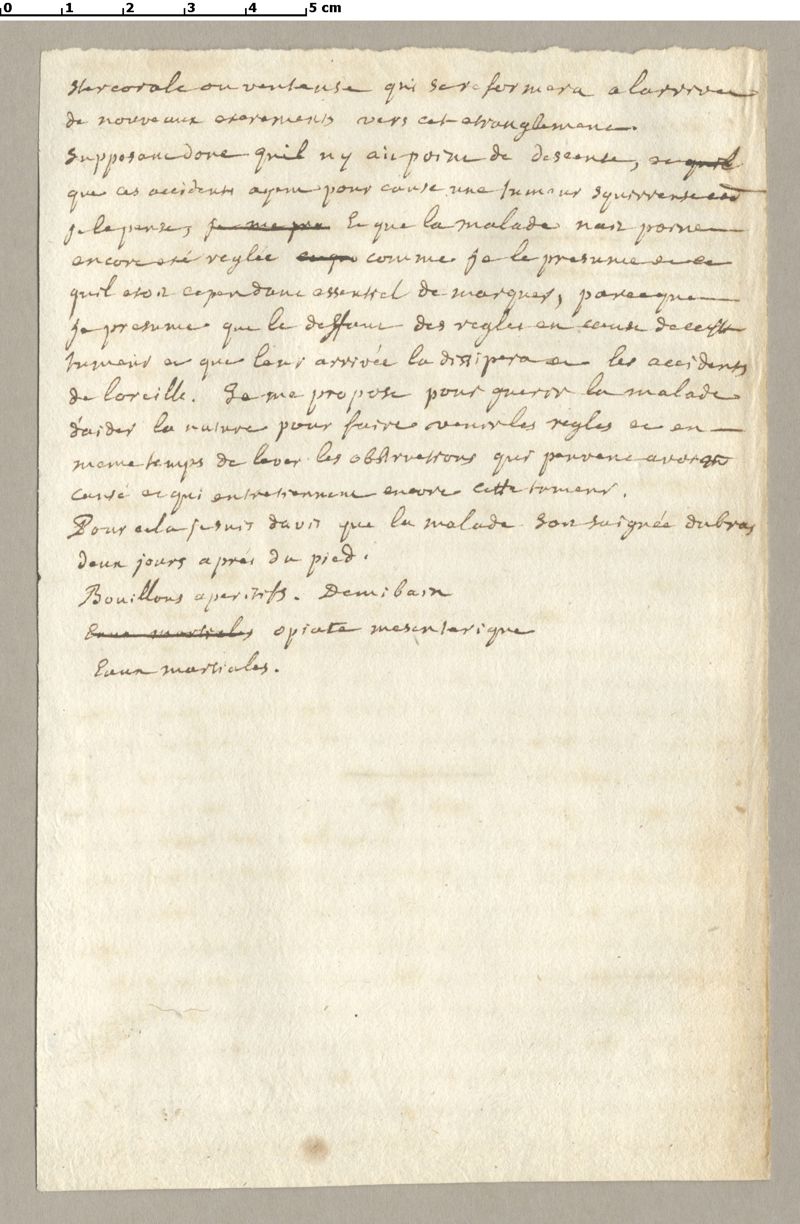 0 1 2 3 4 5 cm
stercorale ou venteuse qui se reformera a larrivee
de nouveaux excrements vers cet etranglement.
Supposant donc quil ny ait point de descente, et quil
que ces accidents ayent pour cause une tumeur squirreuse
je le pense, je me pre Et que la malade nait point
encore eté reglée comme je le presume et ce
quil etoit cependant essentiel de marquer, parce que
je presume que le deffaut des regles en cause de cette
tumeur et que leur arrivée la dissipera et les accidents
de loreille. Je me propose pour guerir la malade
daider la nature pour faire venir les regles et en
meme temps de lever les obstructions qui peuvent avoir
causé et qui entretiennent encore cette tumeur.
Pour cela je suis davis que la malade soit saignée du bras
deux jours aprés du pied.
Bouillons aperitifs. Demibain
Eaux martiales opiate mesenterique
Eaux martiales.